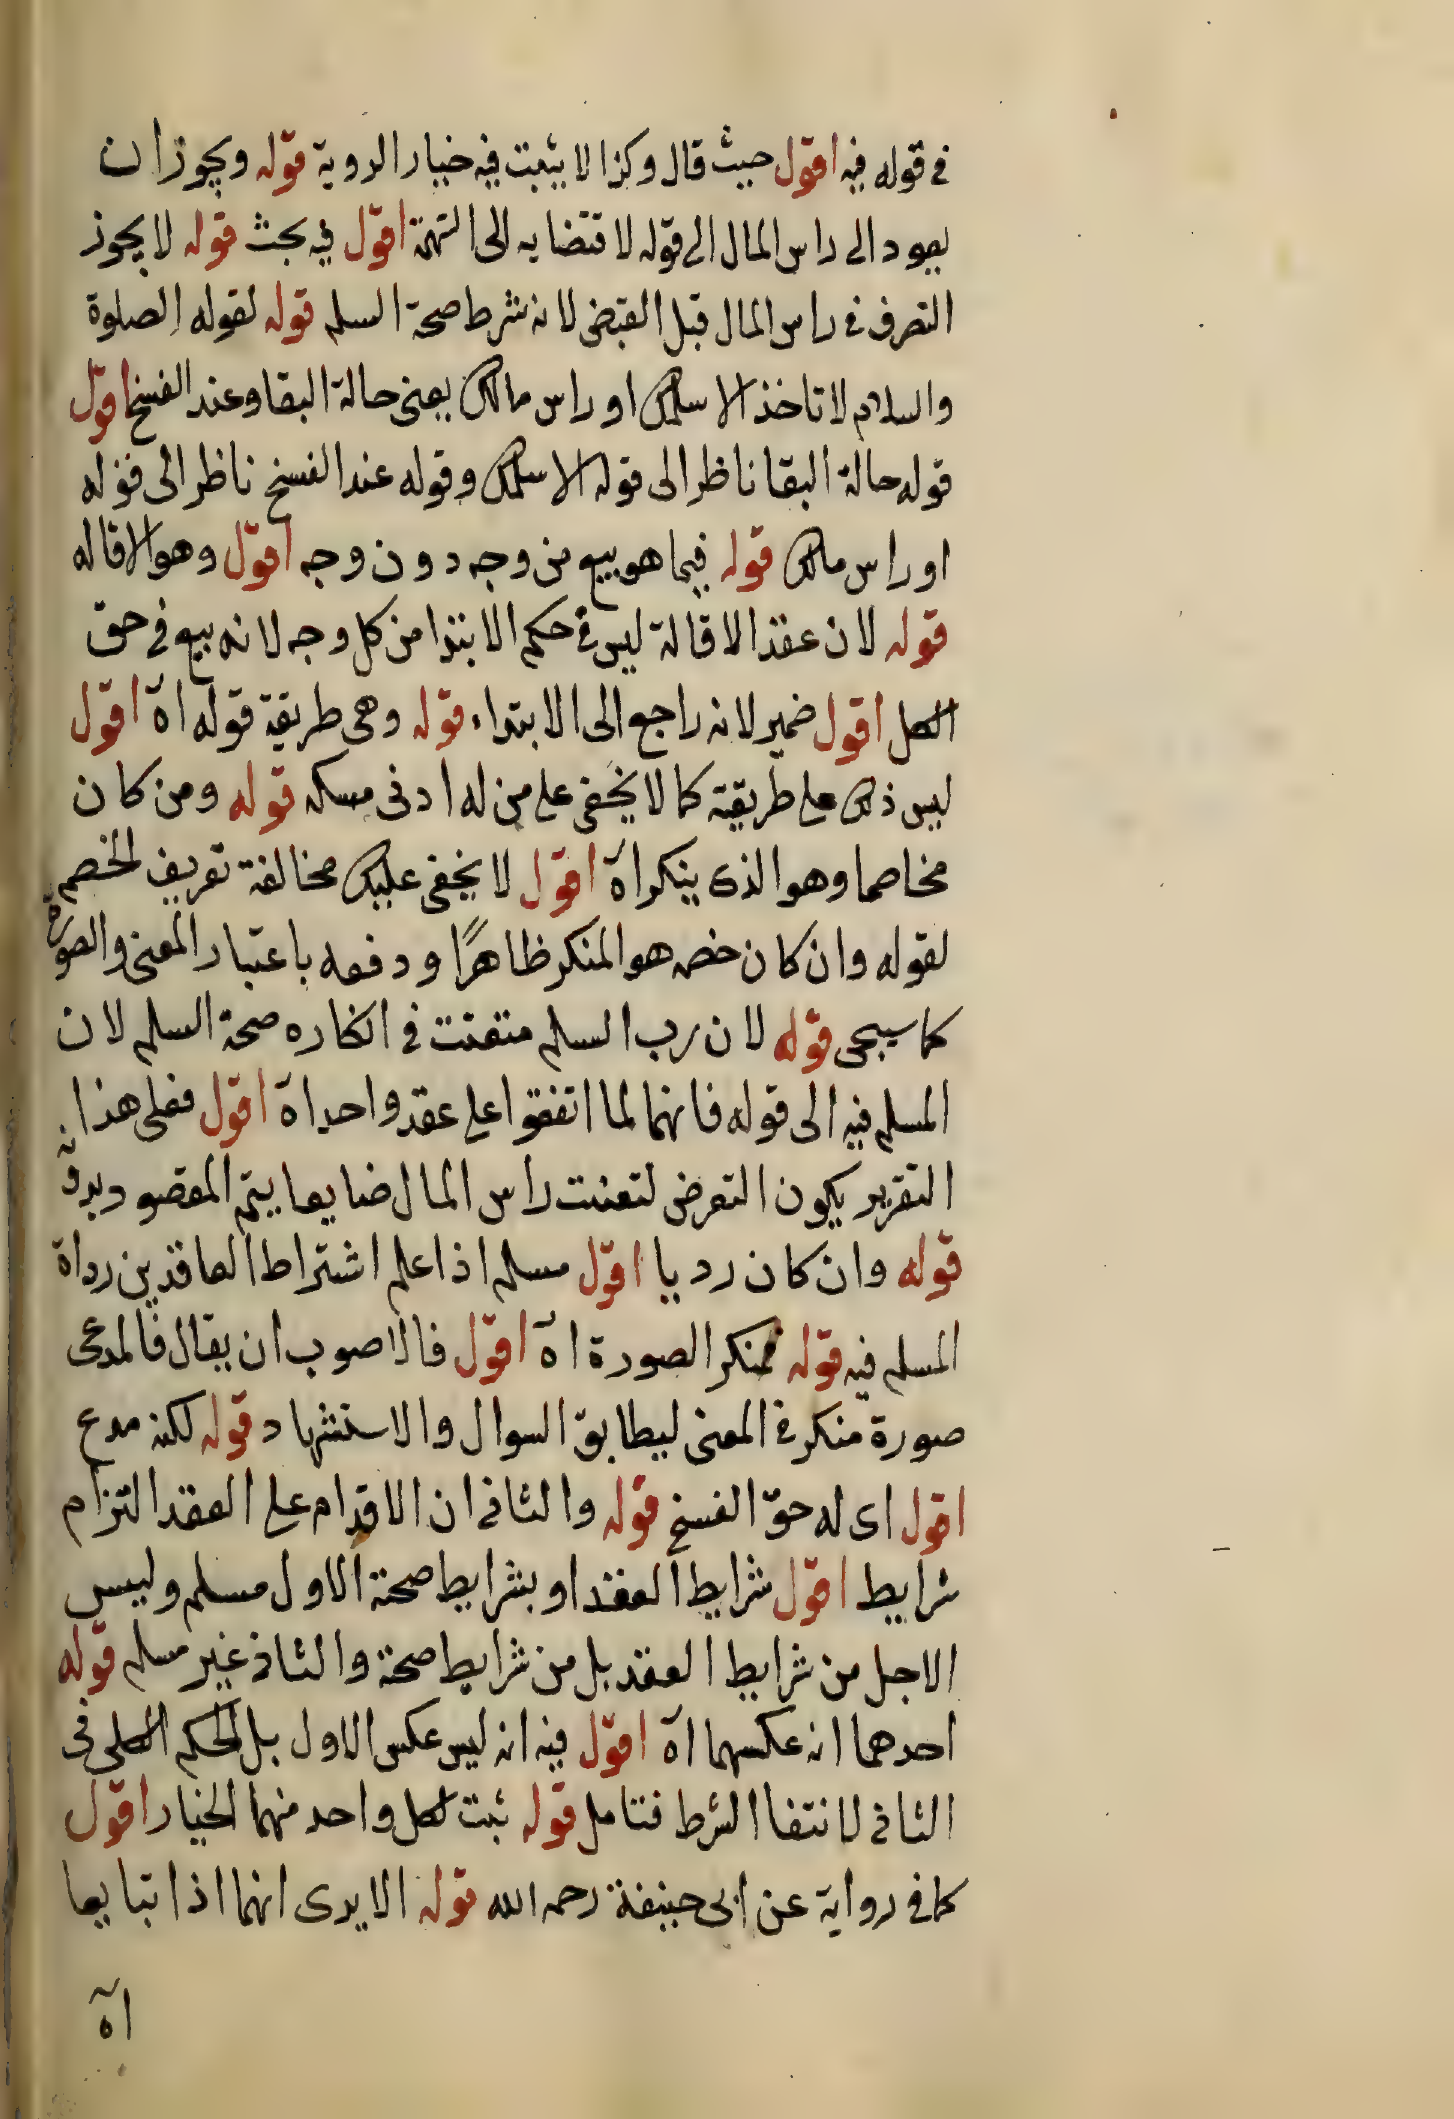 في قوله فيه اقول حيث قال وكذا لا يثبت فيه خيار الروية قوله ويجوز ان
يعود الى راس المال الى قوله لا قتضايه الى التهمة اقول فيه بحث قوله لا يجوز
التصرف في راس المال قبل القبض لانه شرط صحة السلم قوله لقوله الصلوة
والسلام لا تاخذ الا سلمك او راس مالك يعنى حالة البقا وعند الفسخ اقول
قوله حالة البقا ناظر الى قوله الا سلمك وقوله عند الفسخ ناظر الى قوله
او راس مالك قوله فيما هو بيع من وجه دون وجه اقول وهو الاقاله
قوله لان عقد الاقالة ليس في حكم الابتدا من كل وجه لانه بيع في حق
الكل اقول ضمير لانه راجع الى الابتداء قوله وهى طريقة قوله اه اقول
ليس ذلك على طريقية كما لا يخفى على من له ادنى مسكه قوله ومن كان
مخاصما وهو الذى ينكر اه اقول لا يخفى عليك مخالفة تعريف الخصم
لقوله وان كان خصه هو المنكر ظاهرًا ودفعه باعتبار المعنى والصورة
كما سيجى قوله لان رب السلم متعنت في انكاره صحة السلم لان
المسلم فيه الى قوله فانهما لما اتفقوا على عقد واحد اه اقول فعلى هذا
التقرير يكون التعرض لتعنت راس المال ضايعا يتم المقصود بدونه
قوله وان كان رديا اقول مسلم اذا علم اشتراط العاقدين رداة
المسلم فيه قوله فمنكر الصورة اه اقول فالاصوب ان يقال فالمدعى
صورة منكر في المعنى ليطابق السوال والاستشهاد قوله لكنه مدع
اقول اى له حق الفسخ قوله والثانى ان الاقدام على العقد التزام
شرايط اقول شرايط العقد او بشرايط صحة الاول مسلم وليس
الاجل من شرايط العقد بل من شرايط صحة والثانى غير مسلم قوله
احدهما انه عكسهما اه اقول فيه انه ليس عكس الاول بل الحكم الكلى فى
الثانى لانتفا الشرط فتامل قوله ثبت لكل واحد منهما الخيار اقول
كما فى رواية عن ابى حنيفة رحمه الله قوله الا يرى انهما اذا تبايعا
اه